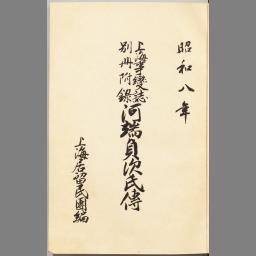 昭和八年
上海事変誌
別冊附録
河端貞次氏傳
上海居留民團編